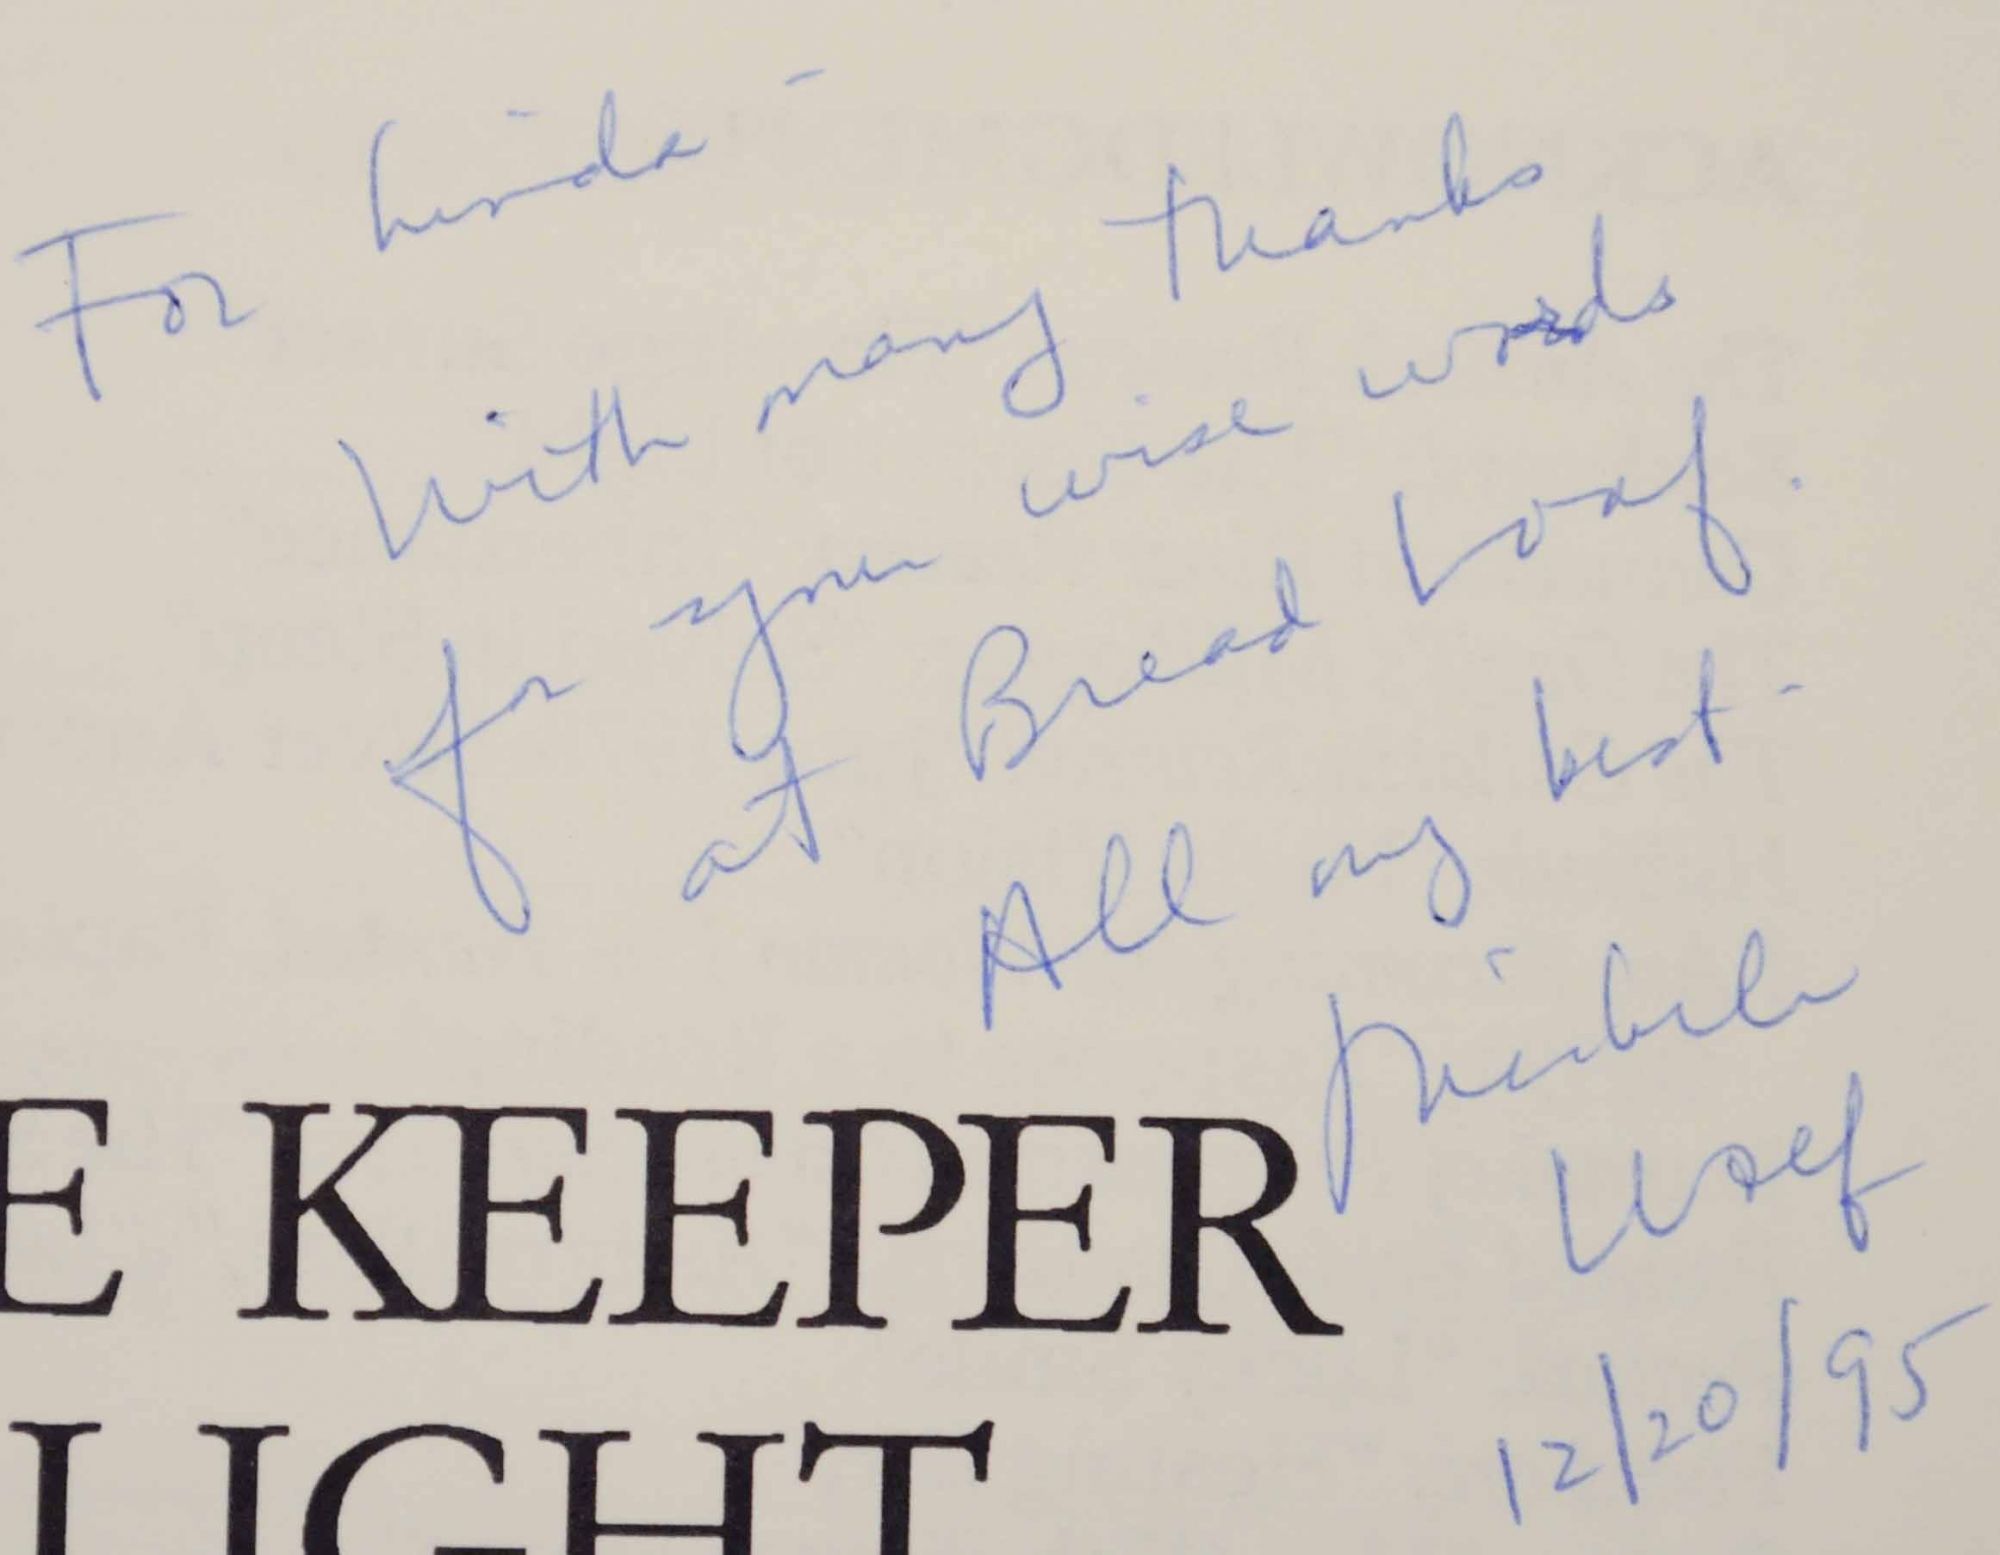 For Linda -
With many thanks
for your wise words
at Bread Loaf.
All my best -
Michele
Wolf
12/20/95
E KEEPER
LIGHT